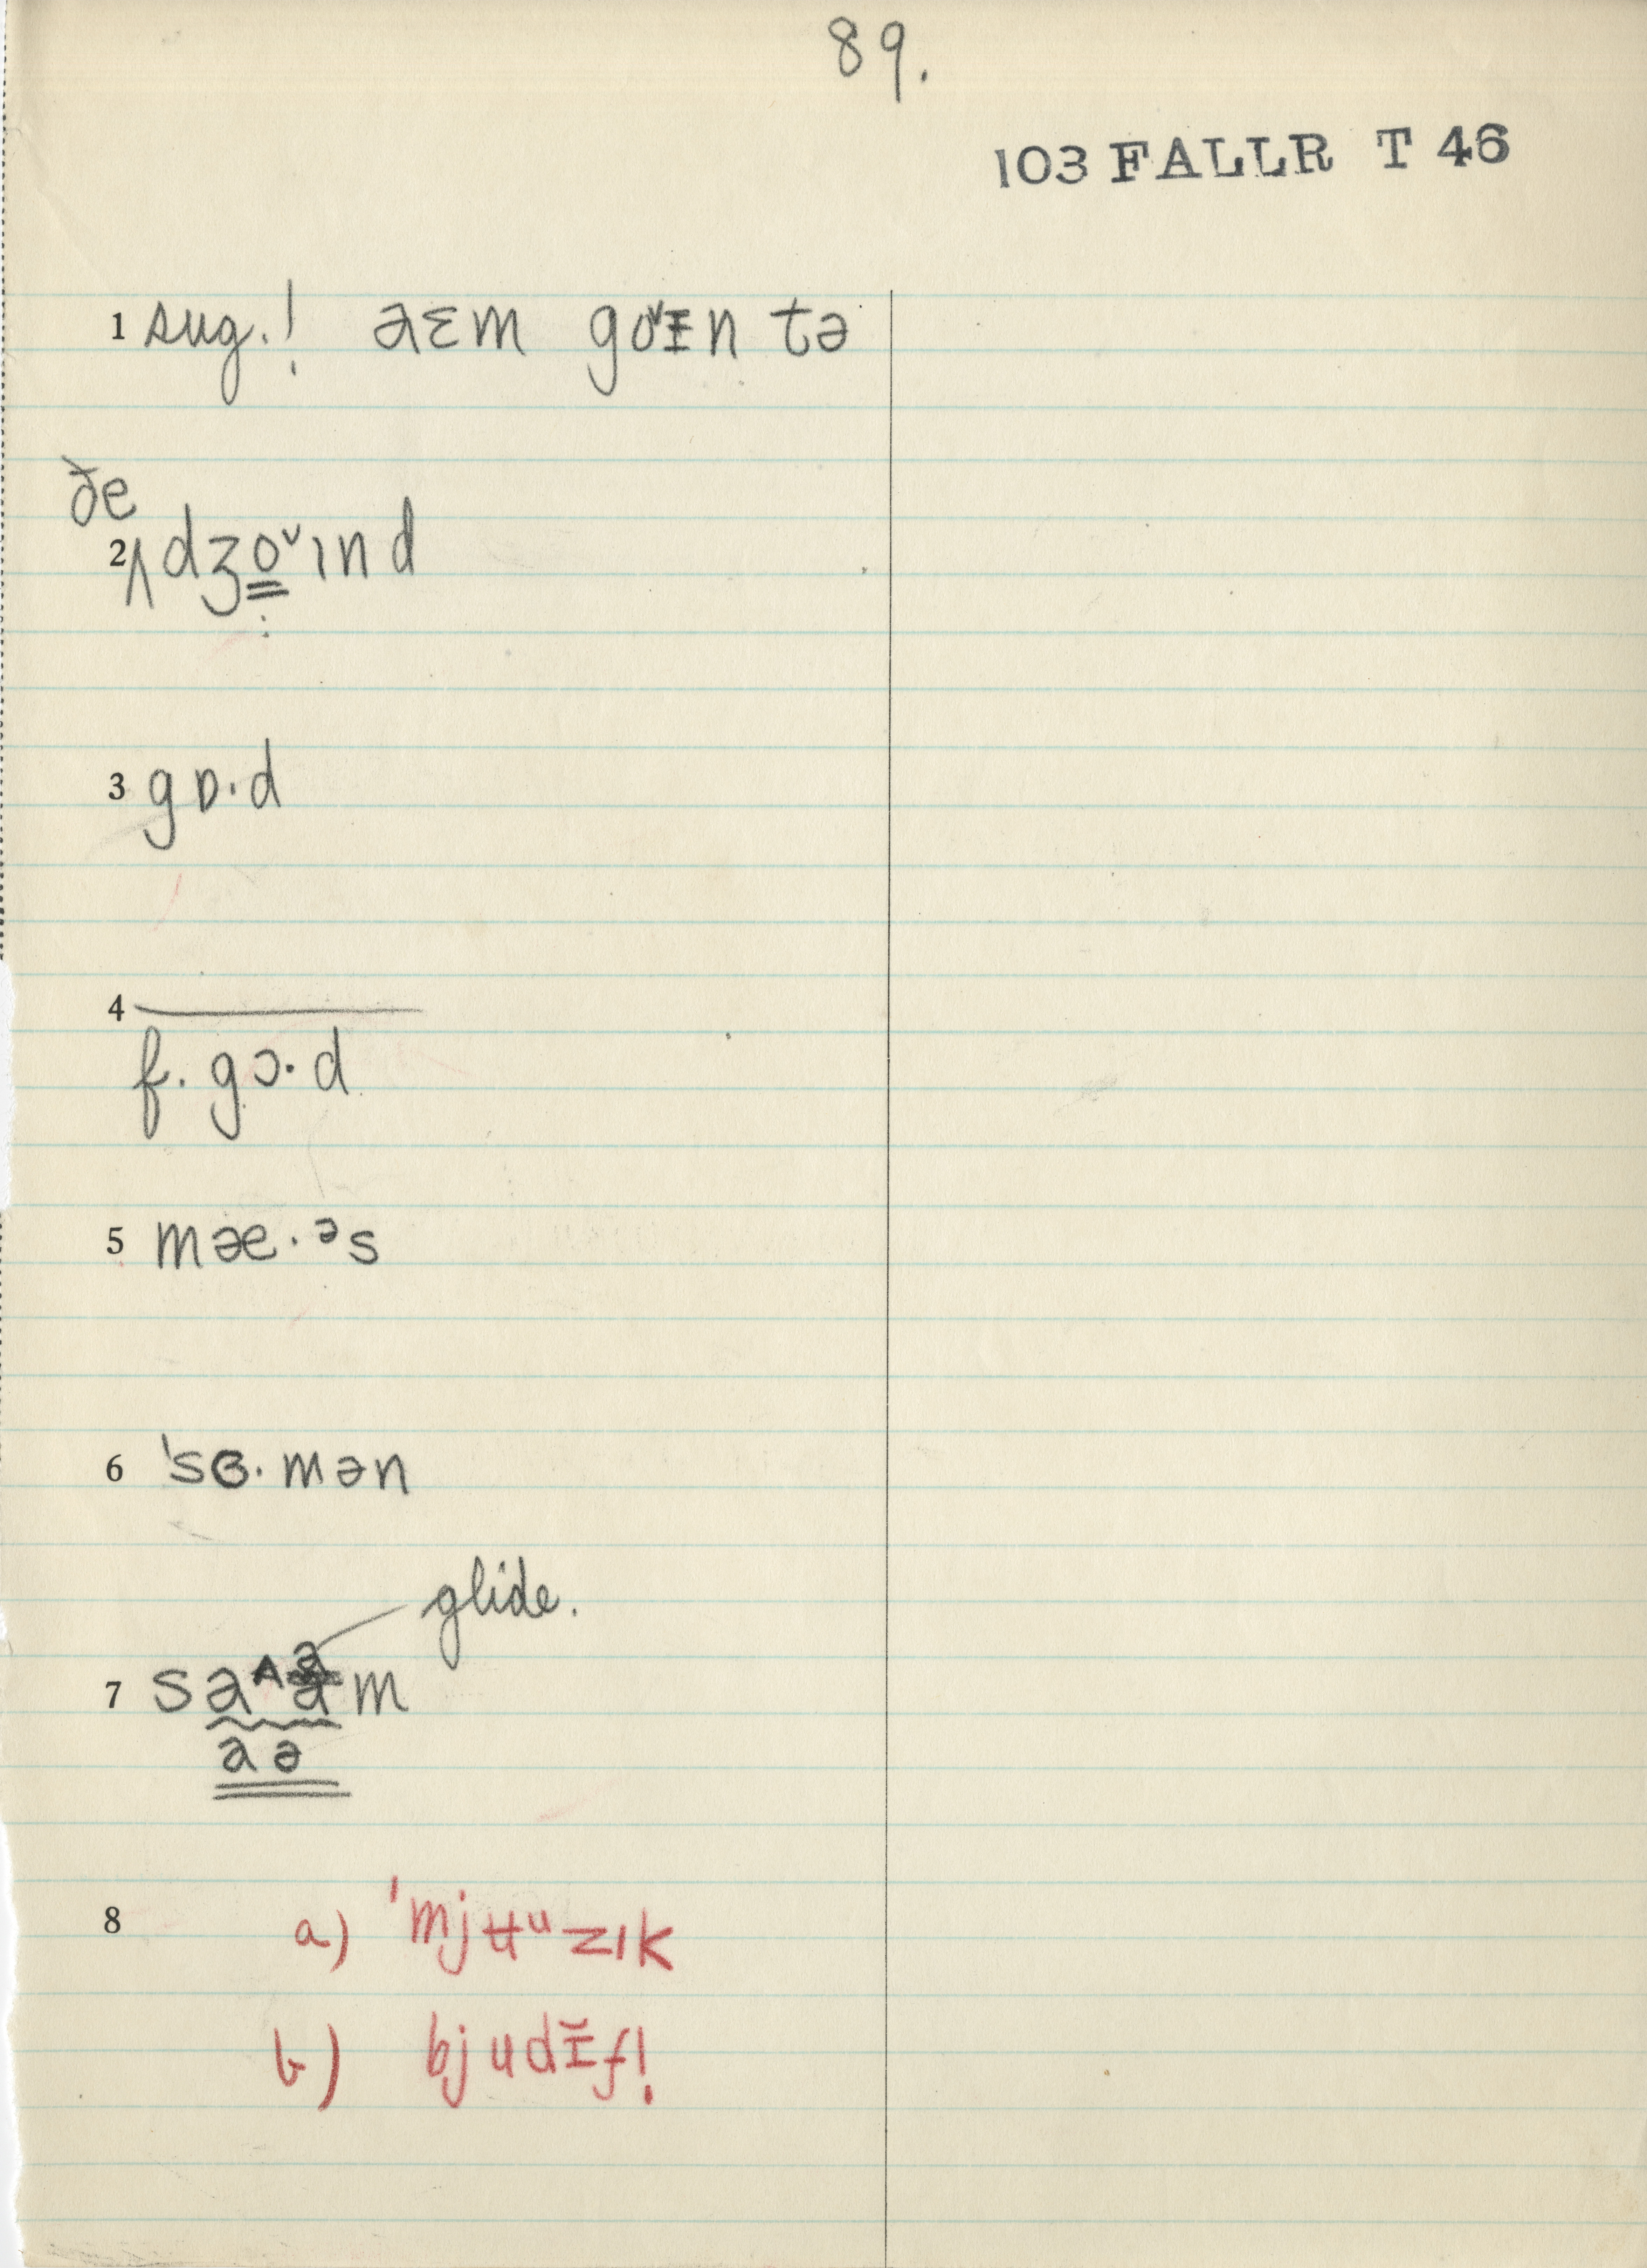 89.
103 FALLR T 46
1 sug.! aɛm go˅ɪn tə
ðe
2 ʌ dʒo˅ɪnd
3 gɒ·d
4 —
f. gɔ·d
5 mæ·ᵊs
6 'sɞ·mən
glide.
7 sa m
aə
8 a) 'mjʉᵘzɪk
b) bjudɪ̆f!